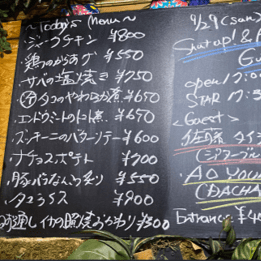 ~Today's Menu~
・ジャークチキン ¥800
・鶏のからあげ ¥550
・サバの塩焼き ¥750
・タコのやわらか煮 ¥650
・エンドウのトマト煮 ¥670
・ズッキーニのバターソテー ¥600
・ナチョスポテト ¥700
・豚バラなんこつ煮り ¥550
・タコライス ¥900
イカの醤焼きおかわり ¥500
9/29(sun)
Shut up! &
open 17:0
START 17:3
<Guest>
佐藤 タイ
AO YOU
(DACHA
Entrance: ¥